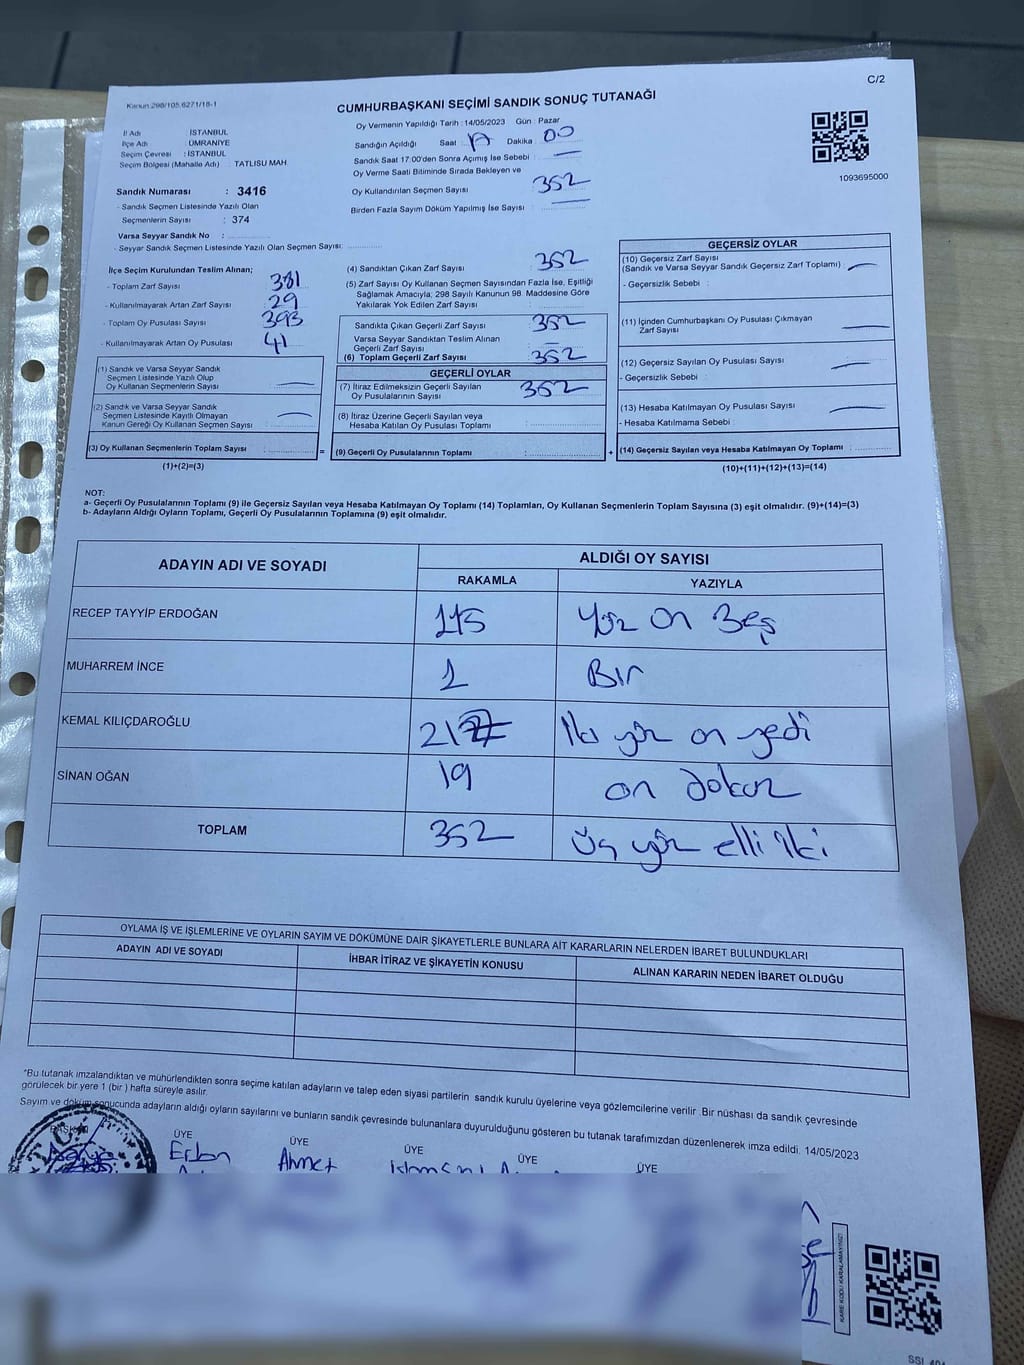 C/2
Kanun:298/105.6271/18-1
CUMHURBAŞKANI SEÇİMİ SANDIK SONUÇ TUTANAĞI
İl Adı : İSTANBUL
İlçe Adı : ÜMRANİYE
Seçim Çevresi : İSTANBUL
Seçim Bölgesi (Mahalle Adı) : TATLISU MAH.
Sandık Numarası : 3416
- Sandık Seçmen Listesinde Yazılı Olan
Seçmenlerin Sayısı : 374
Varsa Seyyar Sandık No :
- Seyyar Sandık Seçmen Listesinde Yazılı Olan Seçmen Sayısı:
Oy Vermenin Yapıldığı Tarih :14/05/2023 Gün : Pazar
Sandığın Açıldığı Saat 17 Dakika 00
Sandık Saat 17:00'den Sonra Açımış İse Sebebi :
Oy Verme Saati Bitiminde Sırada Bekleyen ve
Oy Kullandırılan Seçmen Sayısı 352
Birden Fazla Sayım Döküm Yapılmış İse Sayısı :
1093695000
İlçe Seçim Kurulundan Teslim Alınan;
- Toplam Zarf Sayısı : 381
- Kullanılmayarak Artan Zarf Sayısı : 29
- Toplam Oy Pusulası Sayısı : 393
- Kullanılmayarak Artan Oy Pusulası : 41
(1) Sandık ve Varsa Seyyar Sandık
Seçmen Listesinde Yazılı Olup
Oy Kullanan Seçmenlerin Sayısı :
(2) Sandık ve Varsa Seyyar Sandık
Seçmen Listesinde Kayıtlı Olmayan
Kanun Gereği Oy Kullanan Seçmen Sayısı :
(3) Oy Kullanan Seçmenlerin Toplam Sayısı :
(1)+(2)=(3)
(4) Sandıktan Çıkan Zarf Sayısı : 352
(5) Zarf Sayısı Oy Kullanan Seçmen Sayısından Fazla İse, Eşitliği
Sağlamak Amacıyla; 298 Sayılı Kanunun 98. Maddesine Göre
Yakılarak Yok Edilen Zarf Sayısı :
Sandıkta Çıkan Geçerli Zarf Sayısı : 352
Varsa Seyyar Sandıktan Teslim Alınan
Geçerli Zarf Sayısı :
(6) Toplam Geçerli Zarf Sayısı : 352
GEÇERLİ OYLAR
(7) İtiraz Edilmeksizin Geçerli Sayılan
Oy Pusulalarının Sayısı : 352
(8) İtiraz Üzerine Geçerli Sayılan veya
Hesaba Katılan Oy Pusulası Toplamı :
= (9) Geçerli Oy Pusulalarının Toplamı :
GEÇERSİZ OYLAR
(10) Geçersiz Zarf Sayısı
(Sandık ve Varsa Seyyar Sandık Geçersiz Zarf Toplamı) :
- Geçersizlik Sebebi :
(11) İçinden Cumhurbaşkanı Oy Pusulası Çıkmayan
Zarf Sayısı :
(12) Geçersiz Sayılan Oy Pusulası Sayısı :
- Geçersizlik Sebebi :
(13) Hesaba Katılmayan Oy Pusulası Sayısı :
- Hesaba Katılmama Sebebi :
+ (14) Geçersiz Sayılan veya Hesaba Katılmayan Oy Toplamı :
(10)+(11)+(12)+(13)=(14)
NOT:
a- Geçerli Oy Pusulalarının Toplamı (9) ile Geçersiz Sayılan veya Hesaba Katılmayan Oy Toplamı (14) Toplamları, Oy Kullanan Seçmenlerin Toplam Sayısına (3) eşit olmalıdır. (9)+(14)=(3)
b- Adayların Aldığı Oyların Toplamı, Geçerli Oy Pusulalarının Toplamına (9) eşit olmalıdır.
ADAYIN ADI VE SOYADI ALDIĞI OY SAYISI
RAKAMLA YAZIYLA
RECEP TAYYİP ERDOĞAN 115 Yüz on Beş
MUHARREM İNCE 1 Bir
KEMAL KILIÇDAROĞLU 217 İki yüz on yedi
SİNAN OĞAN 19 on dokuz
TOPLAM 352 Üç yüz elli iki
OYLAMA İŞ VE İŞLEMLERİNE VE OYLARIN SAYIM VE DÖKÜMÜNE DAİR ŞİKAYETLERLE BUNLARA AİT KARARLARIN NELERDEN İBARET BULUNDUKLARI
ADAYIN ADI VE SOYADI İHBAR İTİRAZ VE ŞİKAYETİN KONUSU ALINAN KARARIN NEDEN İBARET OLDUĞU
*Bu tutanak imzalandıktan ve mühürlendikten sonra seçime katılan adayların ve talep eden siyasi partilerin sandık kurulu üyelerine veya gözlemcilerine verilir .Bir nüshası da sandık çevresinde
görülecek bir yere 1 (bir ) hafta süreyle asılır.
Sayım ve döküm sonucunda adayların aldığı oyların sayılarını ve bunların sandık çevresinde bulunanlara duyurulduğunu gösteren bu tutanak tarafımızdan düzenlenerek imza edildi. 14/05/2023
BAŞKAN ÜYE ÜYE ÜYE ÜYE ÜYE
Ahmet
KARE KODU KARALAMAYINIZ!